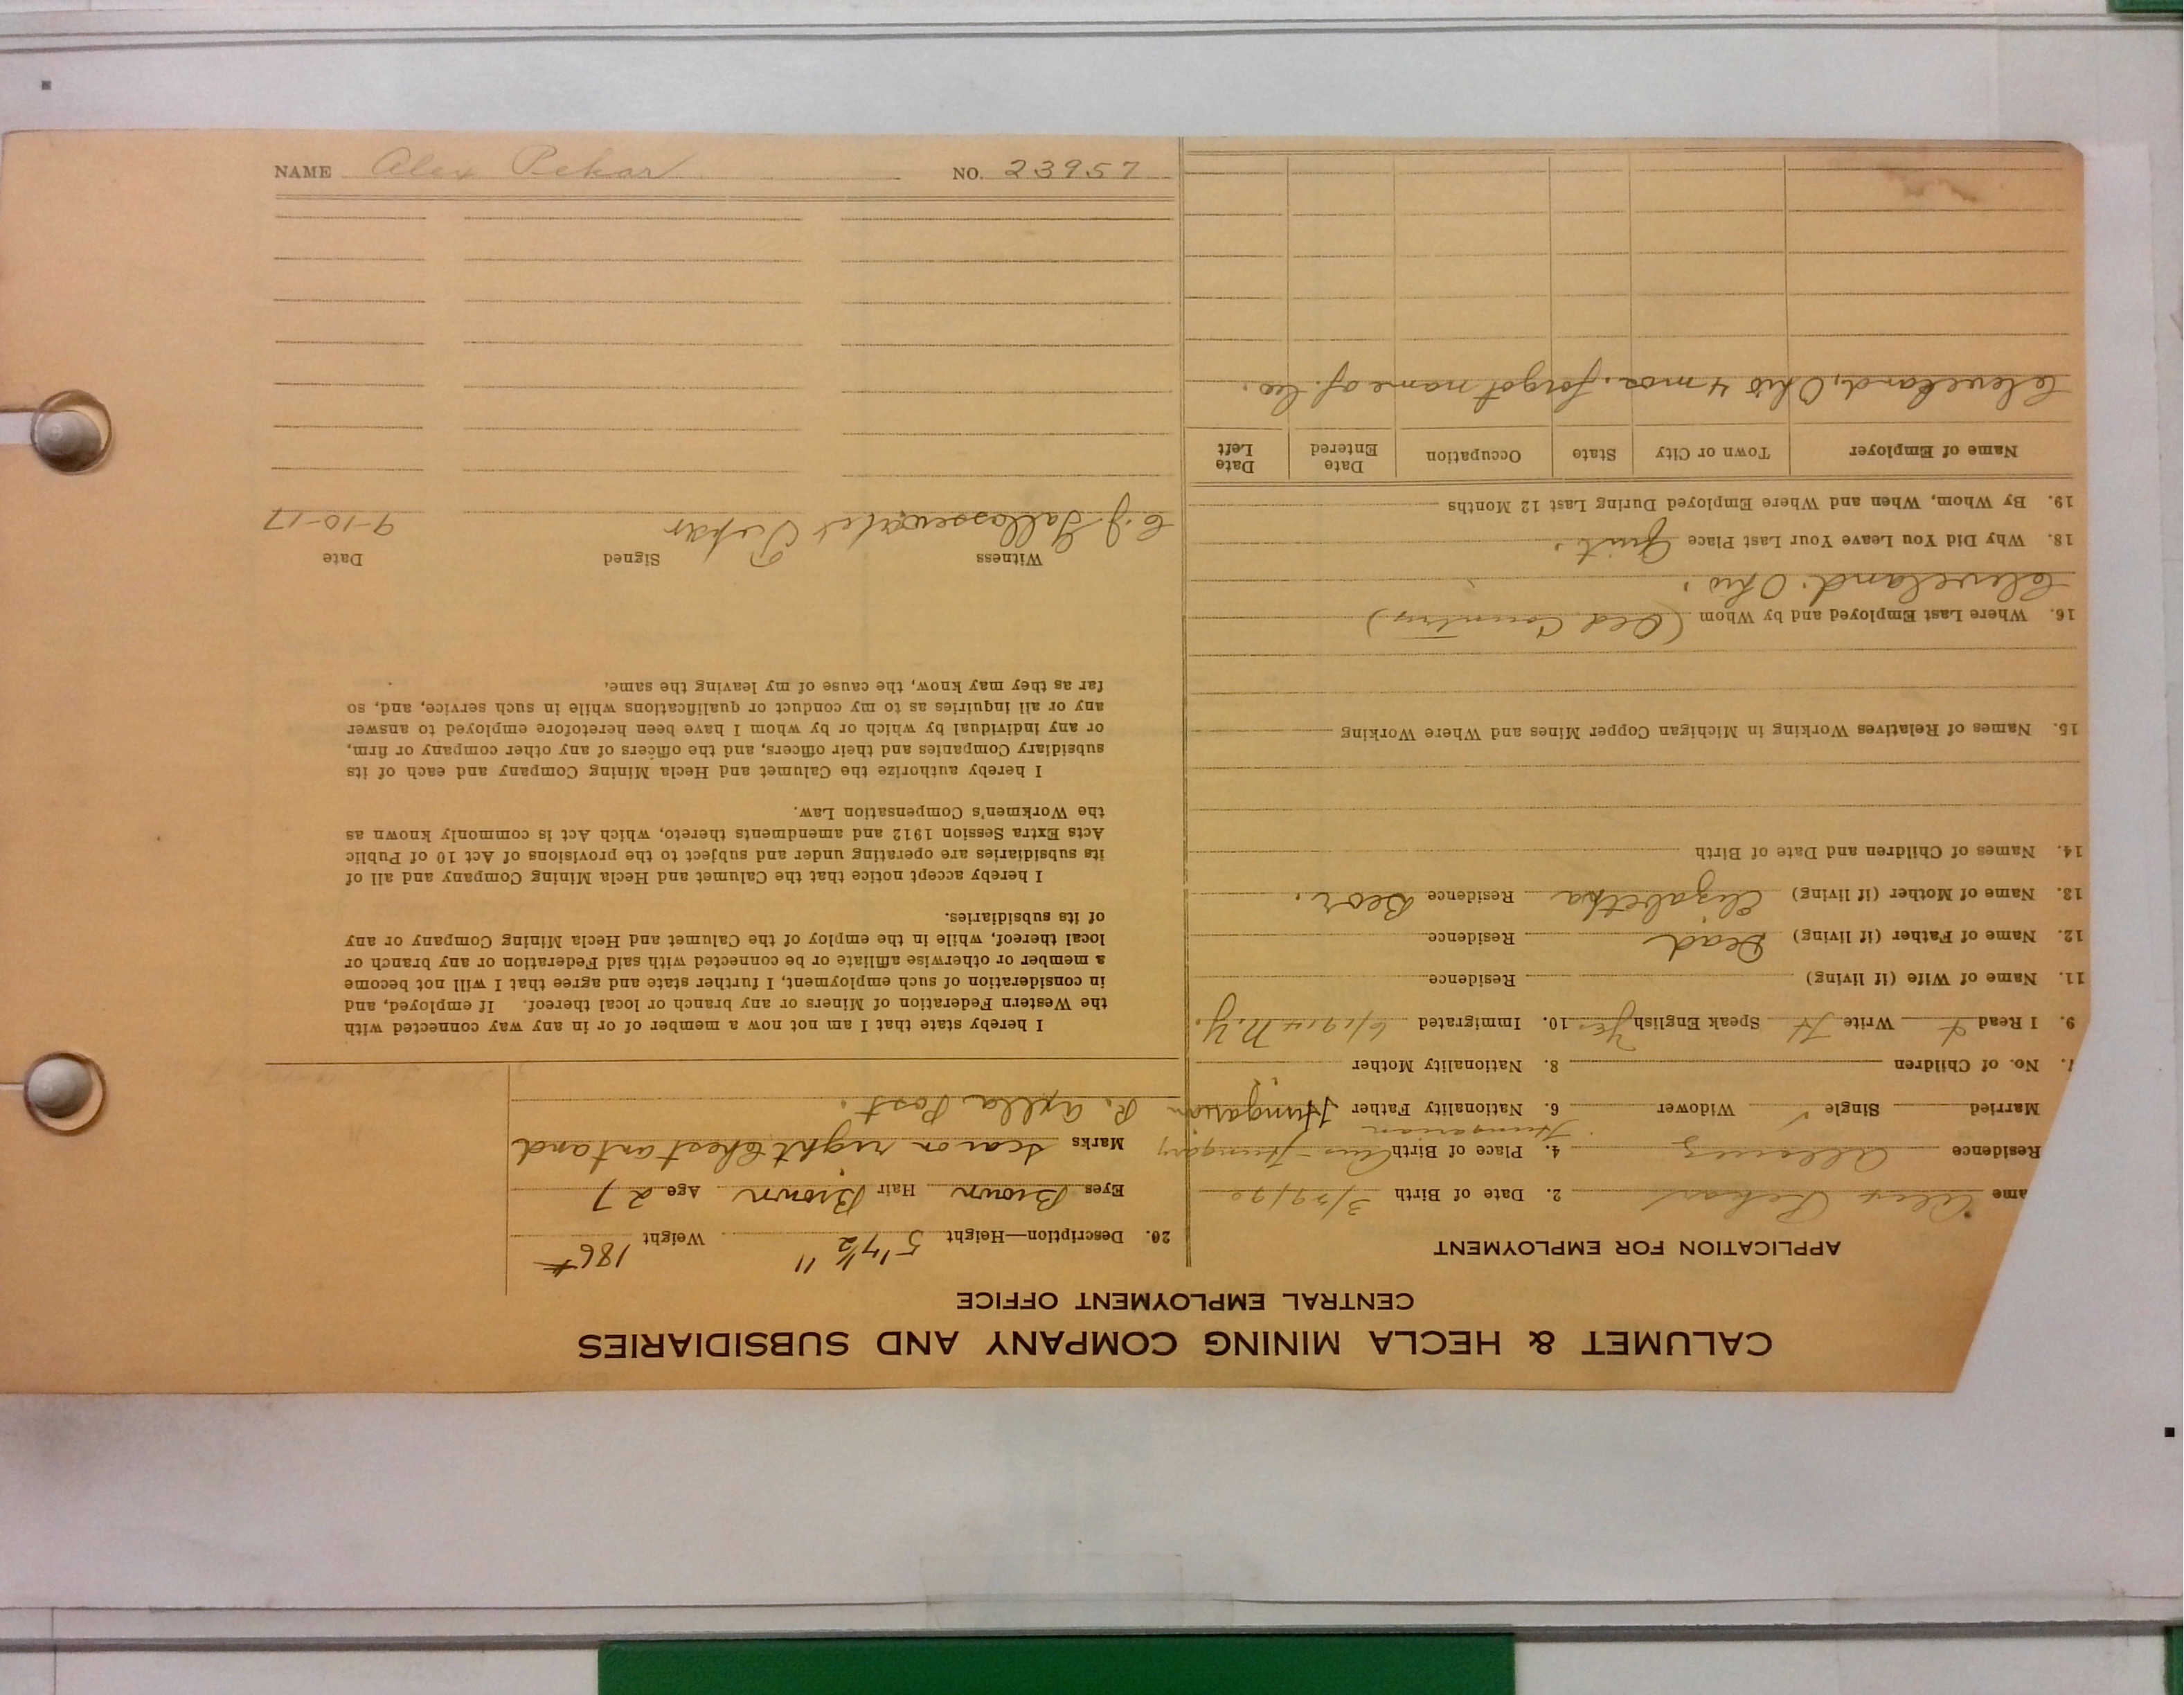 NAME Alex Pekar NO. 23957
CALUMET & HECLA MINING COMPANY AND SUBSIDIARIES
CENTRAL EMPLOYMENT OFFICE
APPLICATION FOR EMPLOYMENT
ame Alex Pekar 2. Date of Birth 3/29/90
Residence Allouez 4. Place of Birth Aus-Hungary
Hungarian
Married Single ✓ Widower 6. Nationality Father Hungarian
7. No. of Children 8. Nationality Mother
9. I Read Write Speak English Yes 10. Immigrated 6/1914 N.Y.
11. Name of Wife (if living) Residence
12. Name of Father (if living) Dead Residence
13. Name of Mother (if living) Elizabetha Residence
14. Names of Children and Date of Birth
15. Names of Relatives Working in Michigan Copper Mines and Where Working
16. Where Last Employed and by Whom (Old Country)
Cleveland. Ohio.
18. Why Did You Leave Your Last Place Quit.
19. By Whom, When and Where Employed During Last 12 Months
Name of Employer Town or City State Occupation Date Entered Date Left
Cleveland, Ohio 4 mos. forgot name of Co.
20. Description—Height 5' 7½" Weight 186#
Eyes Brown Hair Brown Age 27
Marks Scar on right Chest ant and
R. axilla Post.
I hereby state that I am not now a member of or in any way connected with
the Western Federation of Miners or any branch or local thereof. If employed, and
in consideration of such employment, I further state and agree that I will not become
a member or otherwise affiliate or be connected with said Federation or any branch or
local thereof, while in the employ of the Calumet and Hecla Mining Company or any
of its subsidiaries.
I hereby accept notice that the Calumet and Hecla Mining Company and all of
its subsidiaries are operating under and subject to the provisions of Act 10 of Public
Acts Extra Session 1912 and amendments thereto, which Act is commonly known as
the Workmen's Compensation Law.
I hereby authorize the Calumet and Hecla Mining Company and each of its
subsidiary Companies and their officers, and the officers of any other company or firm,
or any individual by which or by whom I have been heretofore employed to answer
any or all inquiries as to my conduct or qualifications while in such service, and, so
far as they may know, the cause of my leaving the same.
Witness Signed Date
Pekar 9-10-17